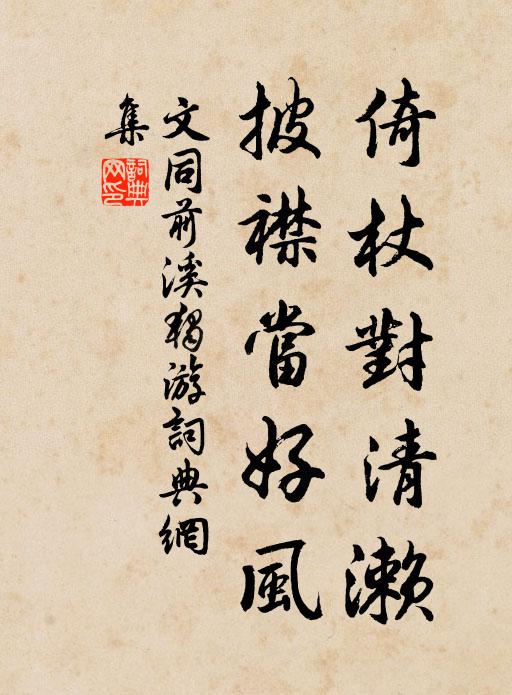 倚杖對清瀨
披襟當好風
文同前溪獨游詞典網
集
詞典
网印